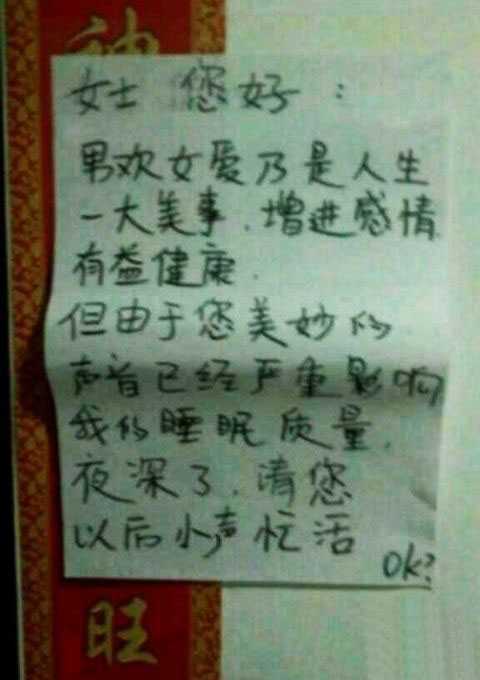 神
女士 您好：
男欢女爱乃是人生
一大美事.增进感情
有益健康.
但由于您美妙的
声音已经严重影响
我的睡眠质量.
夜深了.请您
以后小声忙活
OK?
旺